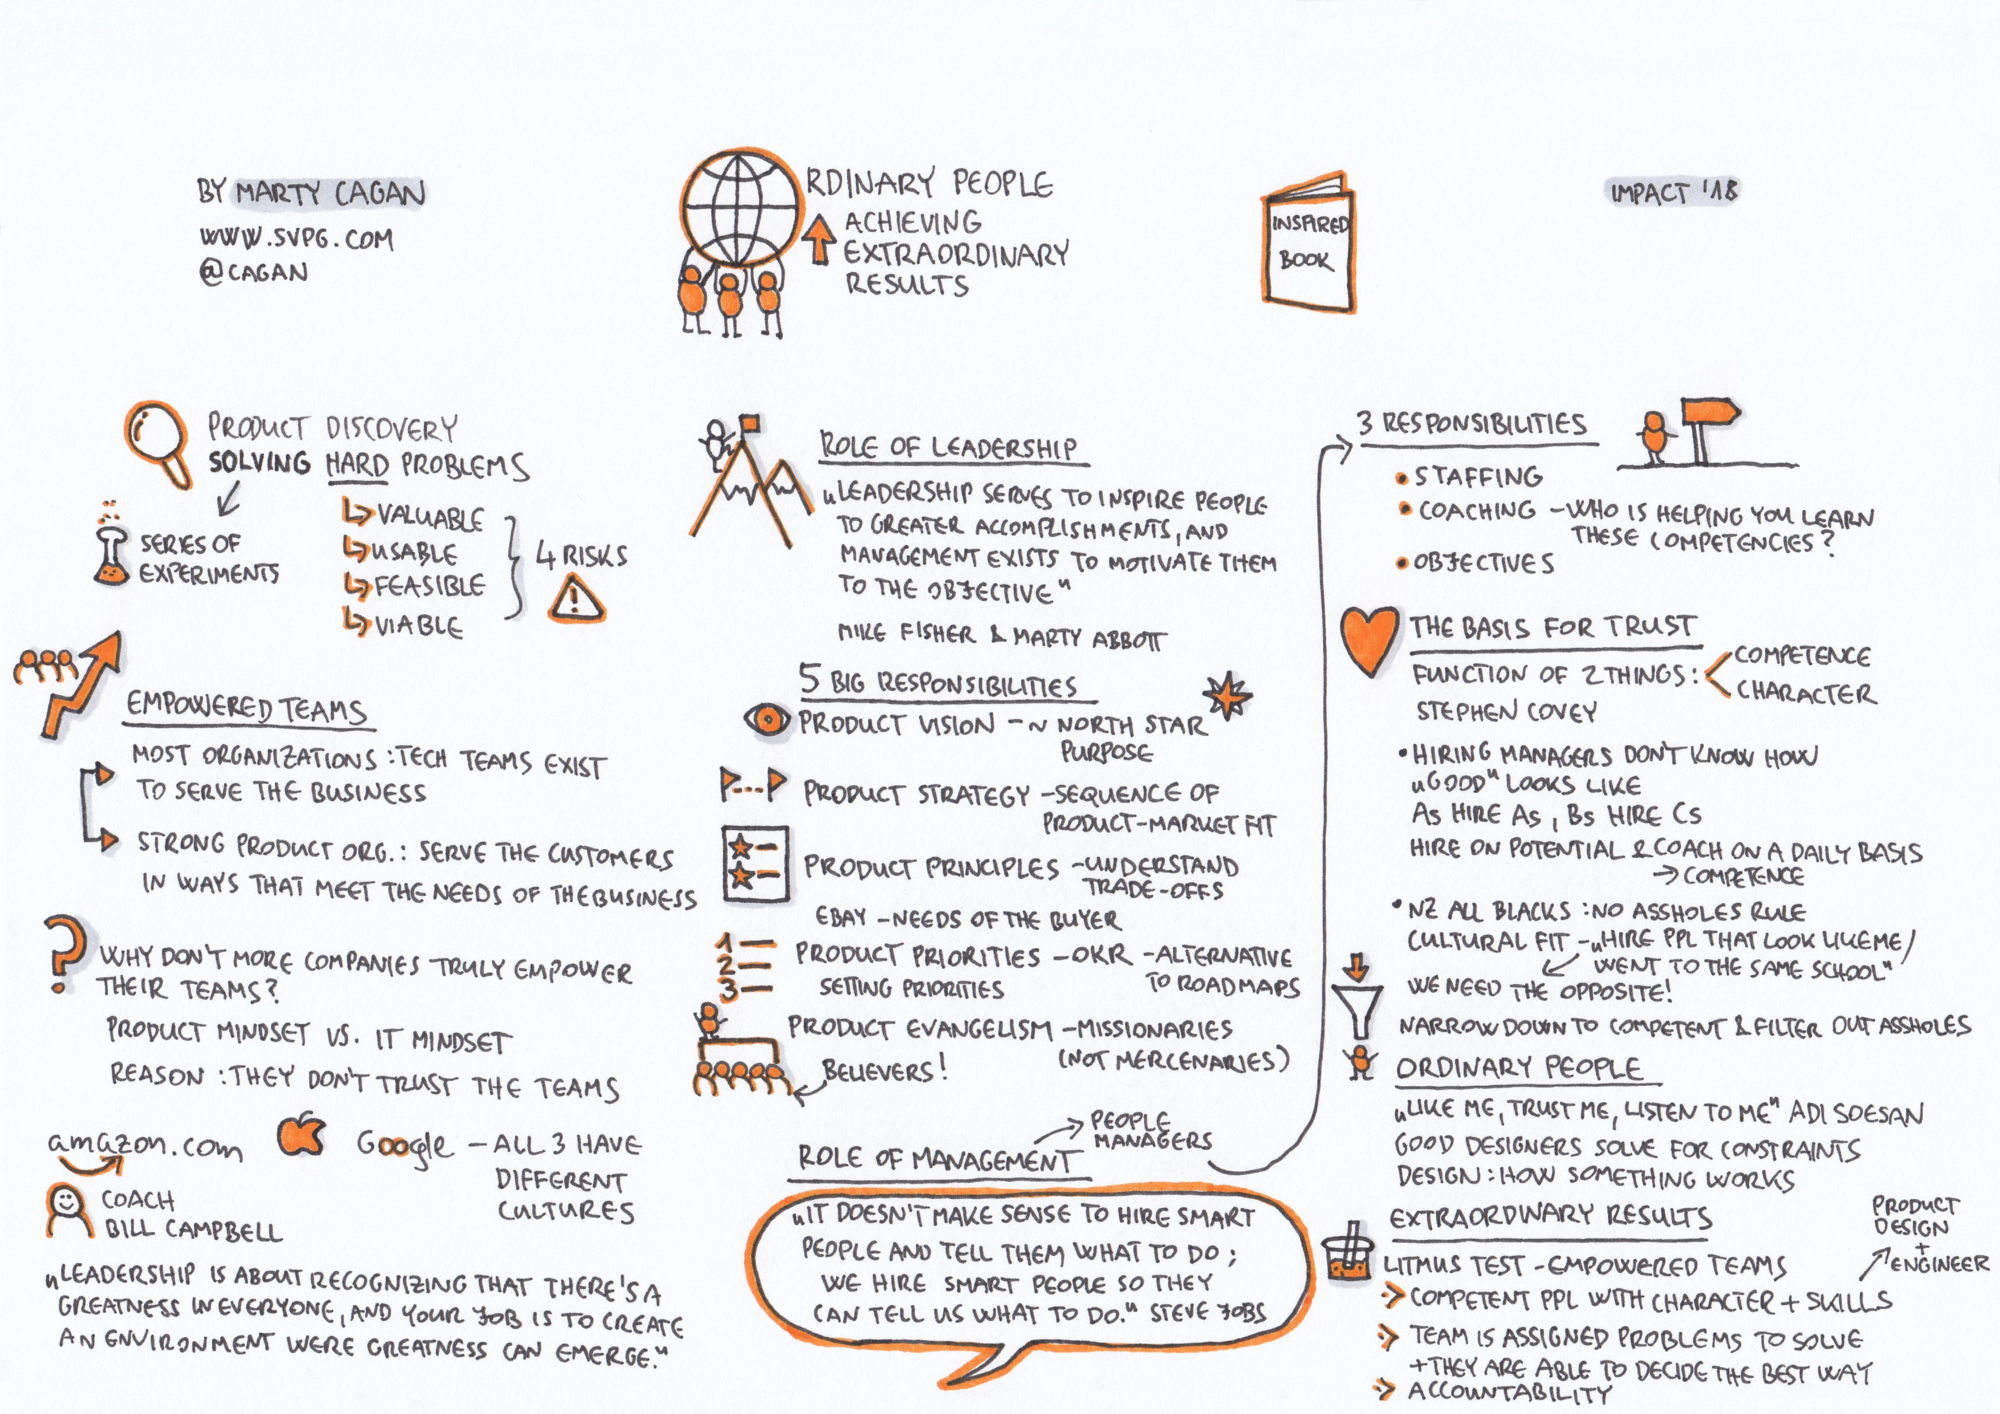 BY MARTY CAGAN
WWW.SVPG.COM
@CAGAN
RDINARY PEOPLE
ACHIEVING
EXTRAORDINARY
RESULTS
INSPIRED
BOOK
IMPACT '18
PRODUCT DISCOVERY
SOLVING HARD PROBLEMS
SERIES OF
EXPERIMENTS
VALUABLE
USABLE
FEASIBLE
VIABLE
4 RISKS
!
EMPOWERED TEAMS
MOST ORGANIZATIONS : TECH TEAMS EXIST
TO SERVE THE BUSINESS
STRONG PRODUCT ORG. : SERVE THE CUSTOMERS
IN WAYS THAT MEET THE NEEDS OF THE BUSINESS
?
WHY DON'T MORE COMPANIES TRULY EMPOWER
THEIR TEAMS?
PRODUCT MINDSET VS. IT MINDSET
REASON : THEY DON'T TRUST THE TEAMS
amazon.com
Google – ALL 3 HAVE
DIFFERENT
CULTURES
COACH
BILL CAMPBELL
„LEADERSHIP IS ABOUT RECOGNIZING THAT THERE'S A
GREATNESS IN EVERYONE, AND YOUR JOB IS TO CREATE
AN ENVIRONMENT WERE GREATNESS CAN EMERGE."
ROLE OF LEADERSHIP
„LEADERSHIP SERVES TO INSPIRE PEOPLE
TO GREATER ACCOMPLISHMENTS, AND
MANAGEMENT EXISTS TO MOTIVATE THEM
TO THE OBJECTIVE"
MIKE FISHER & MARTY ABBOTT
5 BIG RESPONSIBILITIES
PRODUCT VISION – ~ NORTH STAR
PURPOSE
PRODUCT STRATEGY – SEQUENCE OF
PRODUCT-MARKET FIT
PRODUCT PRINCIPLES – UNDERSTAND
TRADE-OFFS
EBAY – NEEDS OF THE BUYER
1
2
3
PRODUCT PRIORITIES – OKR – ALTERNATIVE
SETTING PRIORITIES TO ROADMAPS
PRODUCT EVANGELISM – MISSIONARIES
(NOT MERCENARIES)
BELIEVERS!
PEOPLE
MANAGERS
ROLE OF MANAGEMENT
„IT DOESN'T MAKE SENSE TO HIRE SMART
PEOPLE AND TELL THEM WHAT TO DO ;
WE HIRE SMART PEOPLE SO THEY
CAN TELL US WHAT TO DO." STEVE JOBS
3 RESPONSIBILITIES
• STAFFING
• COACHING – WHO IS HELPING YOU LEARN
THESE COMPETENCIES?
• OBJECTIVES
THE BASIS FOR TRUST
FUNCTION OF 2 THINGS :
COMPETENCE
CHARACTER
STEPHEN COVEY
• HIRING MANAGERS DON'T KNOW HOW
„GOOD" LOOKS LIKE
As HIRE As , Bs HIRE Cs
HIRE ON POTENTIAL & COACH ON A DAILY BASIS
→ COMPETENCE
• NZ ALL BLACKS : NO ASSHOLES RULE
CULTURAL FIT – „HIRE PPL THAT LOOK LIKE ME /
WENT TO THE SAME SCHOOL"
WE NEED THE OPPOSITE!
NARROW DOWN TO COMPETENT & FILTER OUT ASSHOLES
ORDINARY PEOPLE
„LIKE ME, TRUST ME, LISTEN TO ME" ADI SOESAN
GOOD DESIGNERS SOLVE FOR CONSTRAINTS
DESIGN : HOW SOMETHING WORKS
EXTRAORDINARY RESULTS
PRODUCT
DESIGN
+
ENGINEER
LITMUS TEST – EMPOWERED TEAMS
COMPETENT PPL WITH CHARACTER + SKILLS
TEAM IS ASSIGNED PROBLEMS TO SOLVE
+ THEY ARE ABLE TO DECIDE THE BEST WAY
ACCOUNTABILITY